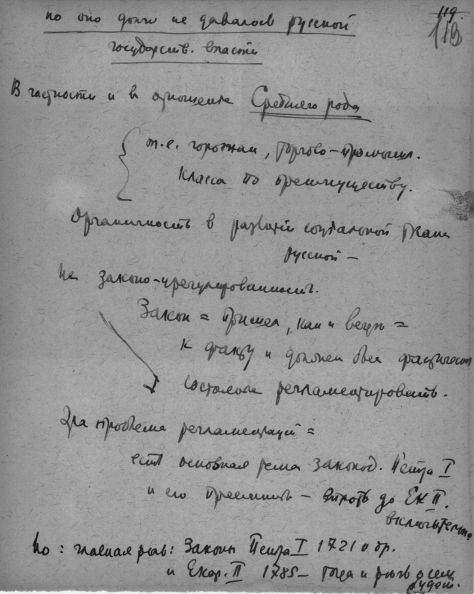 119
119
но оно долго не давалось русской
государств. власти
В частности и в отношении Среднего рода
т.е. горожан, торгово-промышл.
класса по преимуществу.
Органичность в развитии социальной ткани
русской –
не законо-урегулированность.
Закон = пришел, как и везде =
к факту и должен был фактическ
состояние регламентировать.
Эта проблема регламентаций =
есть основная тема законод. Петра I
и его преемников – вплоть до Ек. II.
включительно.
Но: главная роль: Законы Петра I 1721 и др.
и Екат. II 1785 – тогда и речь о сем
будет.